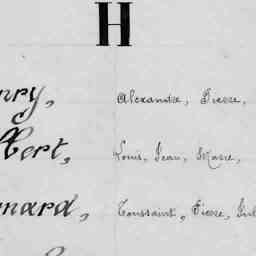 H
nry, Alexandre, Pierre,
Louis, Jean, Marie,
nard, Toussaint, Pierre, Jul